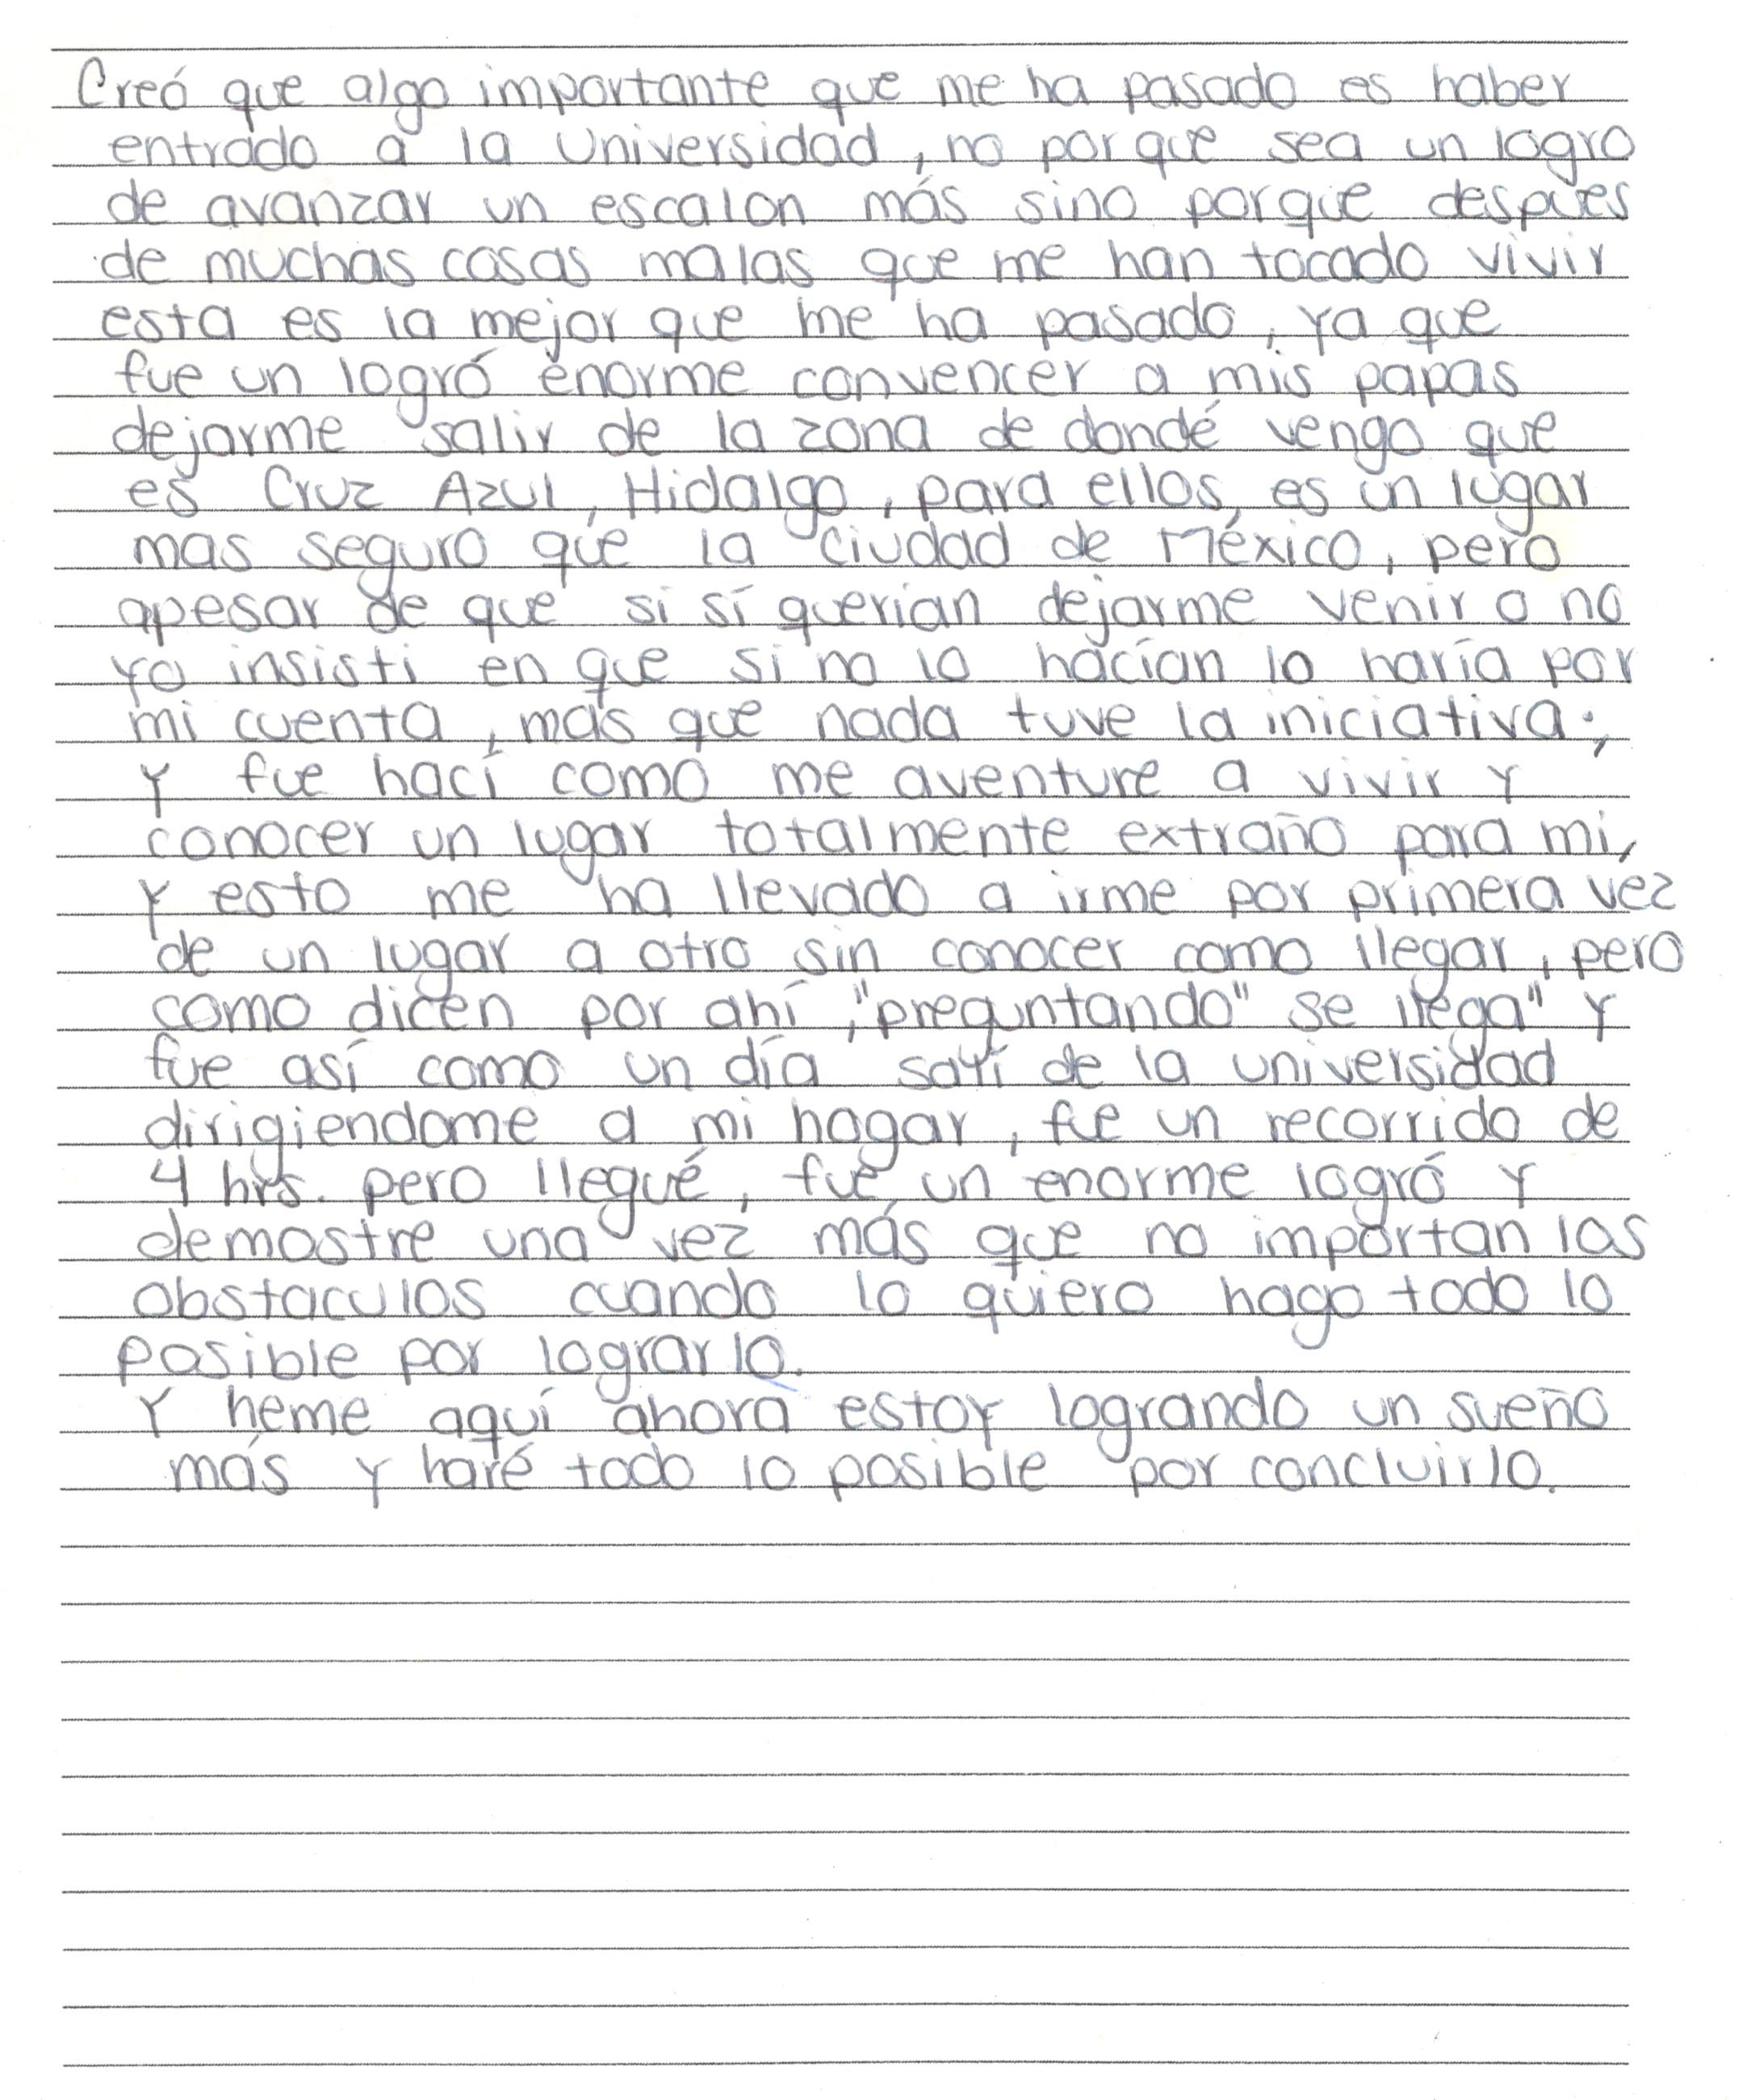 Creó que algo importante que me ha pasado es haber
entrado a la Universidad, no por que sea un logro
de avanzar un escalon más sino porque despues
de muchas cosas malas que me han tocado vivir
esta es la mejor que me ha pasado, ya que
fue un logró enorme convencer a mis papas
dejarme salir de la zona de dondé vengo que
es Cruz Azul, Hidalgo, para ellos, es un lugar
mas seguro que la Ciudad de México, pero
apesar de que si sí querian dejarme venir o no
yo insisti en que si no lo hacían lo haría por
mi cuenta, más que nada tuve la iniciativa;
Y fue hací como me aventure a vivir y
conocer un lugar totalmente extraño para mi,
y esto me ha llevado a irme por primera vez
de un lugar a otro sin conocer como llegar, pero
como dicen por ahí, "preguntando" se llega" y
fue así como un día salí de la universidad
dirigiendome a mi hogar, fue un recorrido de
4 hrs. pero llegué, fue un enorme logró y
demostre una vez más que no importan los
obstaculos cuando lo quiero hago todo lo
posible por lograrlo.
Y heme aquí ahora estoy logrando un sueño
más y haré todo lo posible por concluirlo.